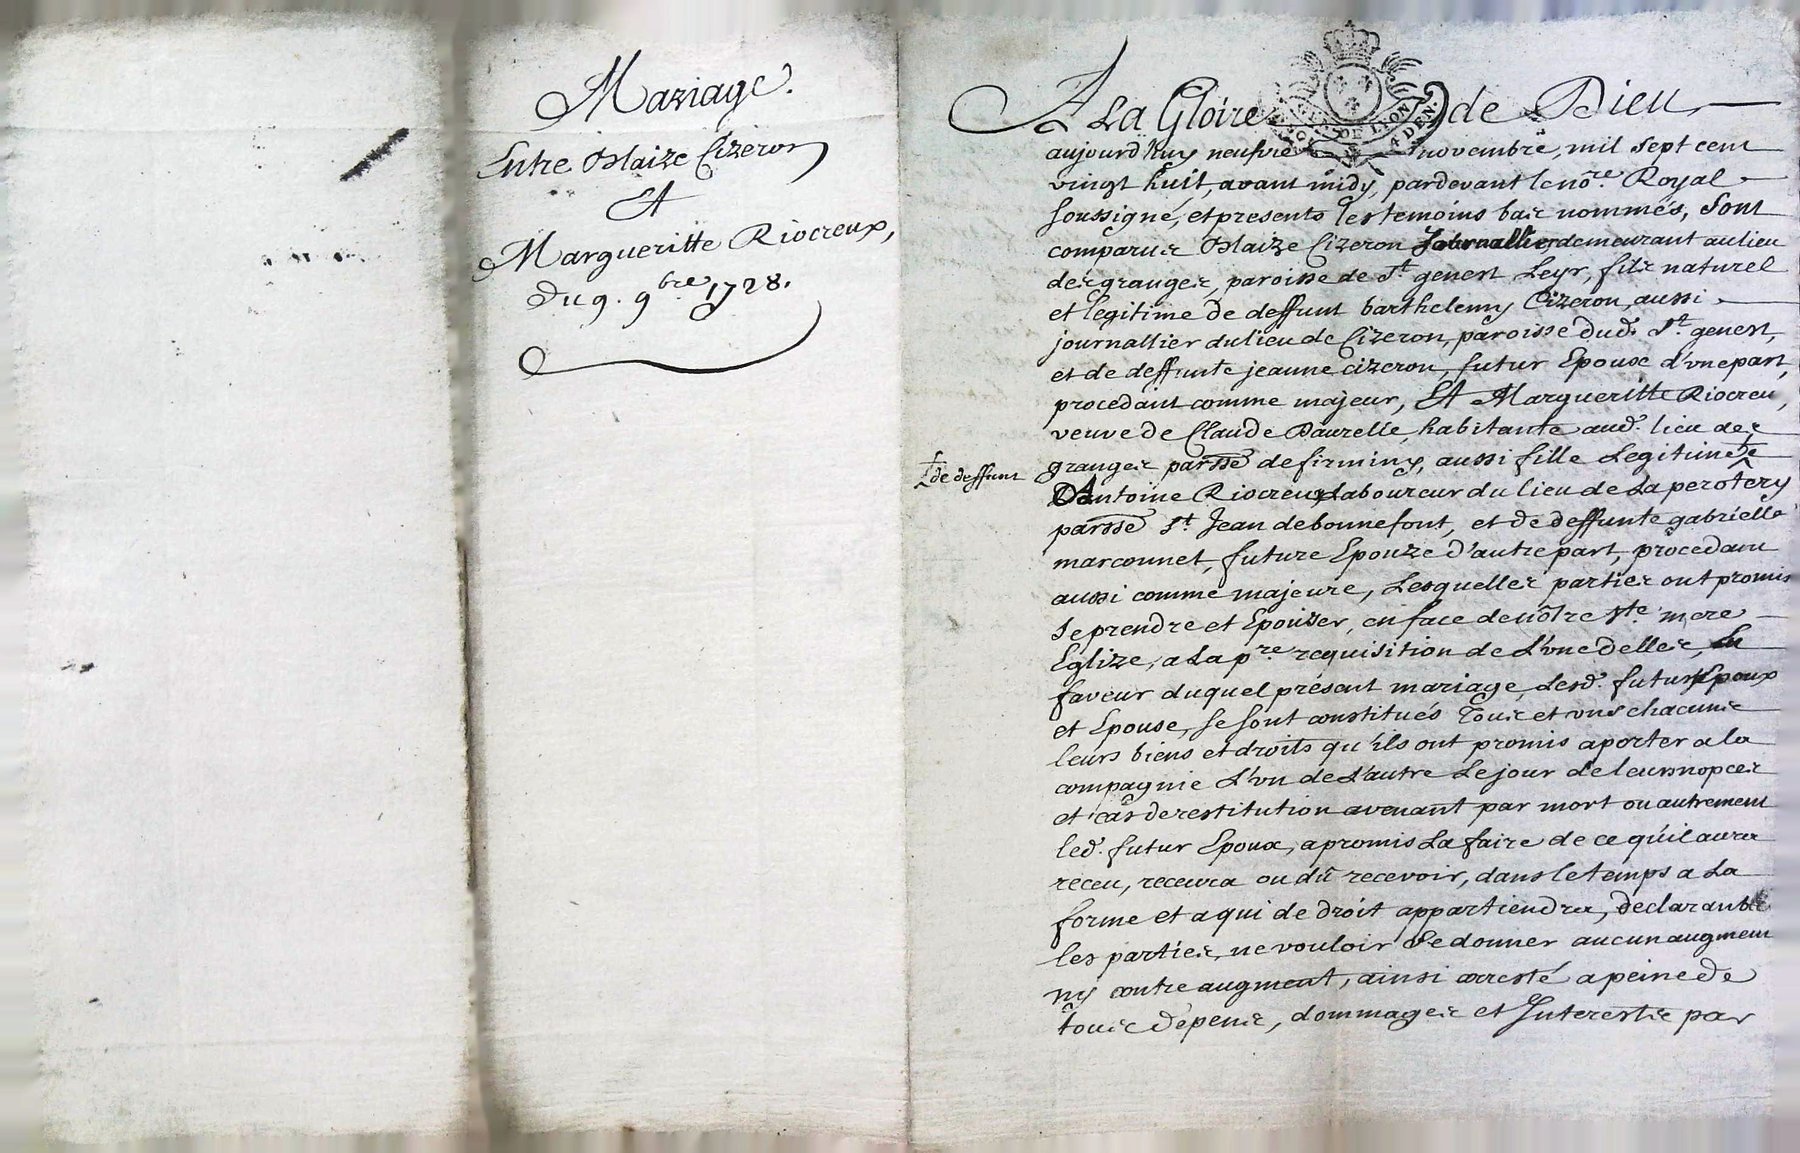 Mariage.
Entre Blaize Cizeron
Et
Margueritte Riocreux,
Du 9. 9bre 1728.
A La Gloire de Dieu
aujourd'huy neufvie novembre, mil sept cent
vingt huit, avant midy, pardevant le nore. Royal
soussigné, et presents les temoins bas nommés, sont
comparus Blaize Cizeron Journallier demeurant au lieu
des granges, paroisse de St. genest Leyr, fils naturel
et legitime de deffunt barthelemy Cizeron, aussi
journallier du lieu de Cizeron, paroisse dud. St. genest,
et de deffunte jeanne cizeron, futur Epoux d'vne part,
procedant comme majeur, Et Margueritte Riocreu,
veuve de Claude Daurelle, habitante aud. lieu des
granges parsse de firminy, aussi fille Legitime
de deffunt
D'Antoine Riocreux, Laboureur du lieu de La perotery
parsse St. Jean de bonnefont, et de deffunte gabrielle
marconnet, future Epouze d'autre part, procedant
aussi comme majeure, Lesquelles parties ont promis
se prendre et Epouzer, en face de nôtre Ste. mere
Eglize, a La pre. requisition de L'vne d'elles, En
faveur duquel présent mariage, Lesd. futurs Epoux
et Epouse, se sont constitués Tous et vns chacuns
leurs biens et droits qu'ils ont promis aporter a la
compagnie L'vn de L'autre Le jour de leurs nopces
et cas de restitution avenant par mort ou autrement
led. futur Epoux, a promis La faire de ce qu'il aura
receu, recevra ou dû recevoir, dans le temps a La
forme et a qui de droit appartiendra, declarant
les parties, ne vouloir se donner aucun augment
ny contre augment, ainsi arresté a peine de
tous dépens, dommages et Interests par